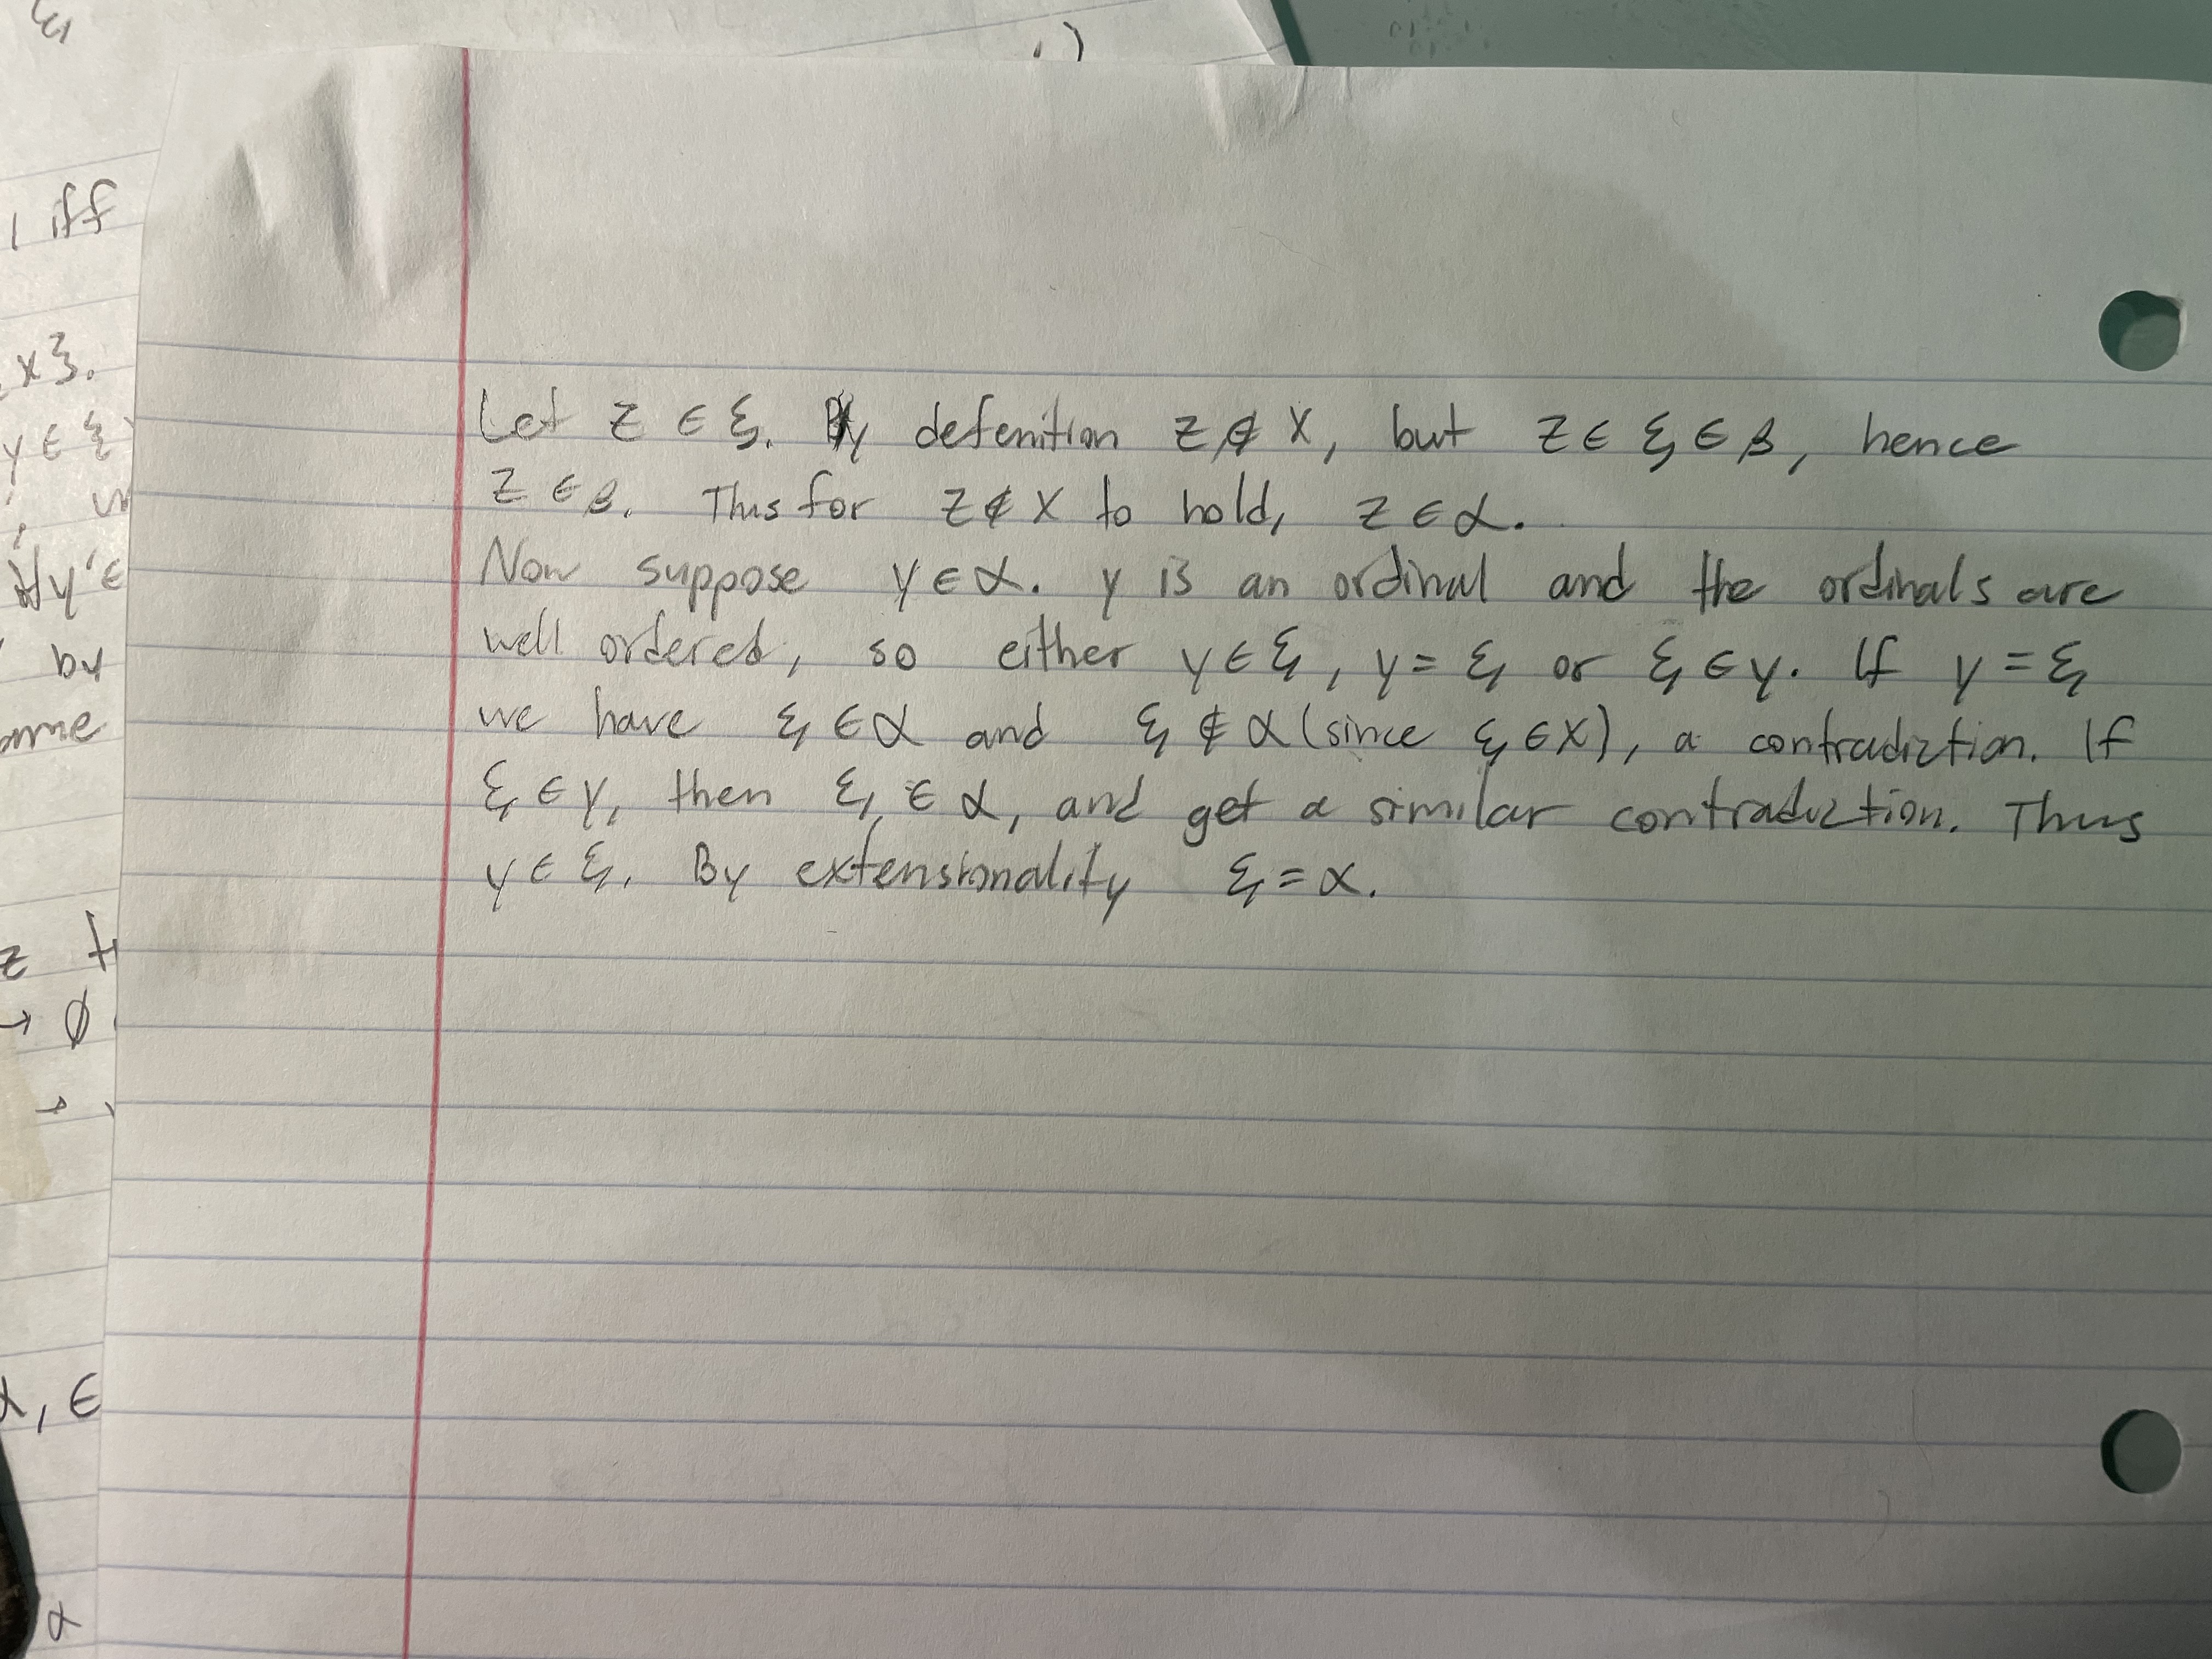 Let z ∈ ξ. By defenition z ∉ X, but z ∈ ξ ∈ β, hence
z ∈ β. Thus for z ∉ X to hold, z ∈ α.
Now suppose y ∈ α. y is an ordinal and the ordinals are
well ordered, so either y ∈ ξ, y = ξ or ξ ∈ y. If y = ξ
we have ξ ∈ α and ξ ∉ α (since ξ ∈ X), a contradiction. If
ξ ∈ y, then ξ ∈ α, and get a similar contradiction. Thus
y ∈ ξ. By extensionality ξ = α.
iff
x}.
y ∈ ξ
by
z
→ ∅
α, ∈
α